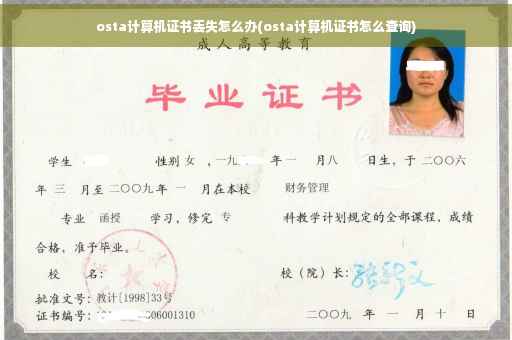 osta计算机证书丢失怎么办(osta计算机证书怎么查询)
成人高等教育
毕业证书
学生 性别 女 ，一九 年一 月八 日生，于二〇〇六
年 三 月至二〇〇九年 一 月在本校 财务管理
专业 函授 学习，修完 专 科教学计划规定的全部课程，成绩
合格，准予毕业。
校 名： 校（院）长：
批准文号：教计[1998]33号
证书编号： 06001310 二〇〇九 年 一 月 十 日